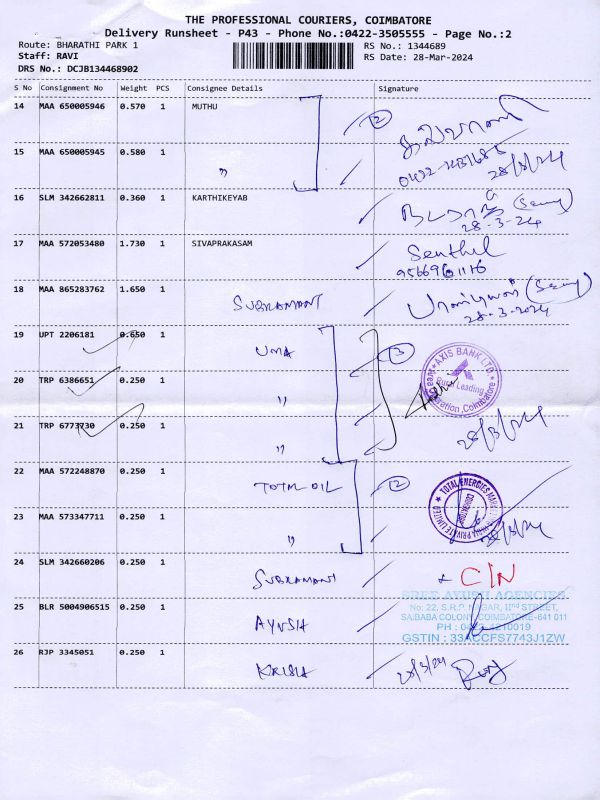 THE PROFESSIONAL COURIERS, COIMBATORE
Delivery Runsheet - P43 - Phone No.:0422-3505555 - Page No.:2
Route: BHARATHI PARK 1
RS No.: 1344689
Staff: RAVI
RS Date: 28-Mar-2024
DRS No.: DCJB134468902
S No Consignment No Weight PCS Consignee Details Signature
14 MAA 650005946 0.570 1 MUTHU 2
15 MAA 650005945 0.580 1 "
28/3/24
16 SLM 342662811 0.360 1 KARTHIKEYAB
28-3-24
17 MAA 572053480 1.730 1 SIVAPRAKASAM Senthil
18 MAA 865283762 1.650 1 SUBRAMANI
28-3-2024
19 UPT 2206181 0.650 1 UMA 3
AXIS BANK LTD.
20 TRP 6386651 0.250 1 "
21 TRP 6773730 0.250 1 "
28/3/24
22 MAA 572248870 0.250 1 TOTAL OIL 2
23 MAA 573347711 0.250 1 "
28/3/24
24 SLM 342660206 0.250 1 SUBRAMANI C/N
SREE AYUSH AGENCIES
25 BLR 5004906515 0.250 1 AYUSH
No: 22, S.R.P. NAGAR, IInd STREET,
SAIBABA COLONY, COIMBATORE-641 011
GSTIN : 33ACCFS7743J1ZW
26 RJP 3345051 0.250 1 KRISH 28/3/24